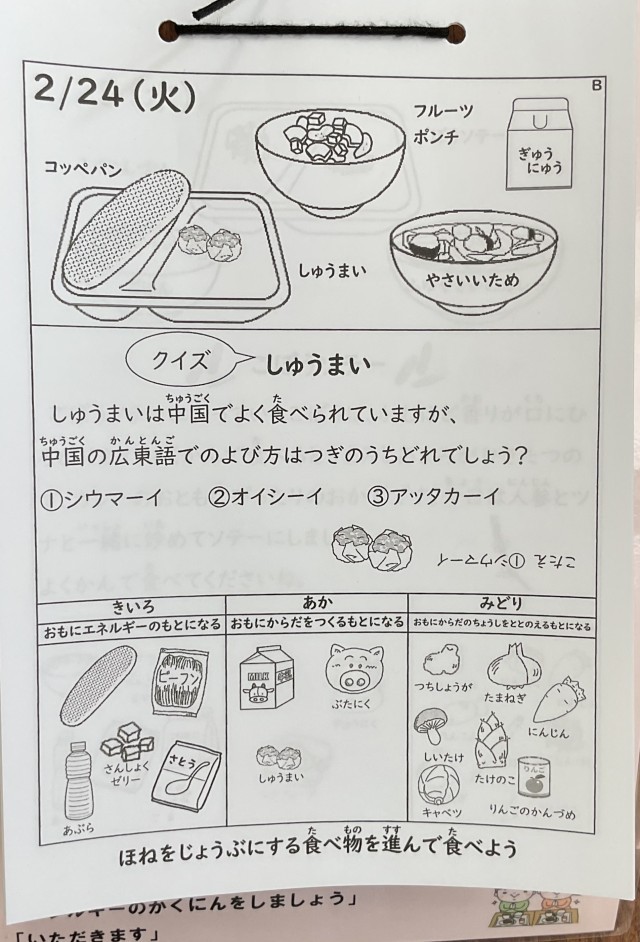 2/24(火)
B
フルーツ
ポンチ
ぎゅう
にゅう
コッペパン
しゅうまい
やさいいため
クイズ
しゅうまい
しゅうまいは中国でよく食べられていますが、
中国の広東語でのよび方はつぎのうちどれでしょう?
①シウマーイ ②オイシーイ ③アッタカーイ
こたえ①シウマーイ
きいろ あか みどり
おもにエネルギーのもとになる おもにからだをつくるもとになる おもにからだのちょうしをととのえるもとになる
ビーフン
MILK
ぶたにく
つちしょうが
たまねぎ
にんじん
さんしょく
ゼリー
さとう
しゅうまい
しいたけ
たけのこ
りんご
あぶら
キャベツ
りんごのかんづめ
ほねをじょうぶにする食べ物を進んで食べよう
ルギーのかくにんをしましょう」
「いただきます」